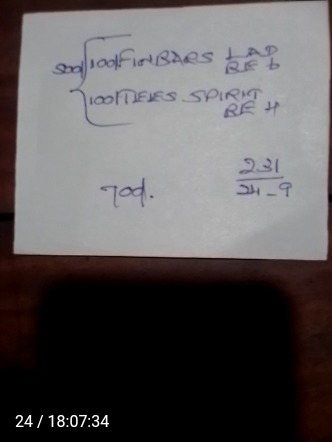 500/ 100/FINBARS LAD
BE 6
100/TEES SPIRIT
BE 4
700/.
231
24-9
24 / 18:07:34